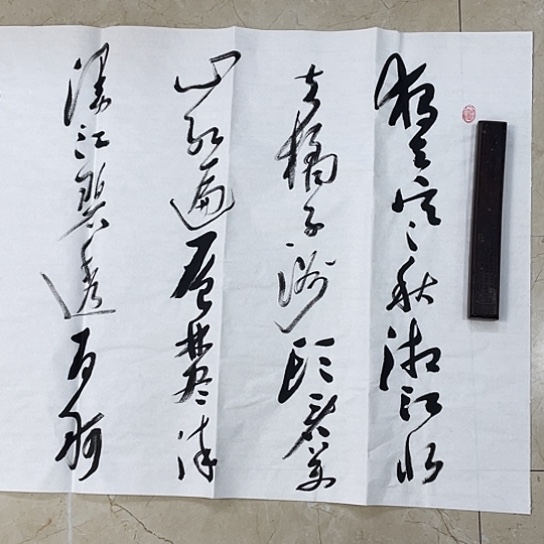 独立寒秋湘江北
去橘子洲頭看万
山红遍层林尽染
漫江碧透百舸